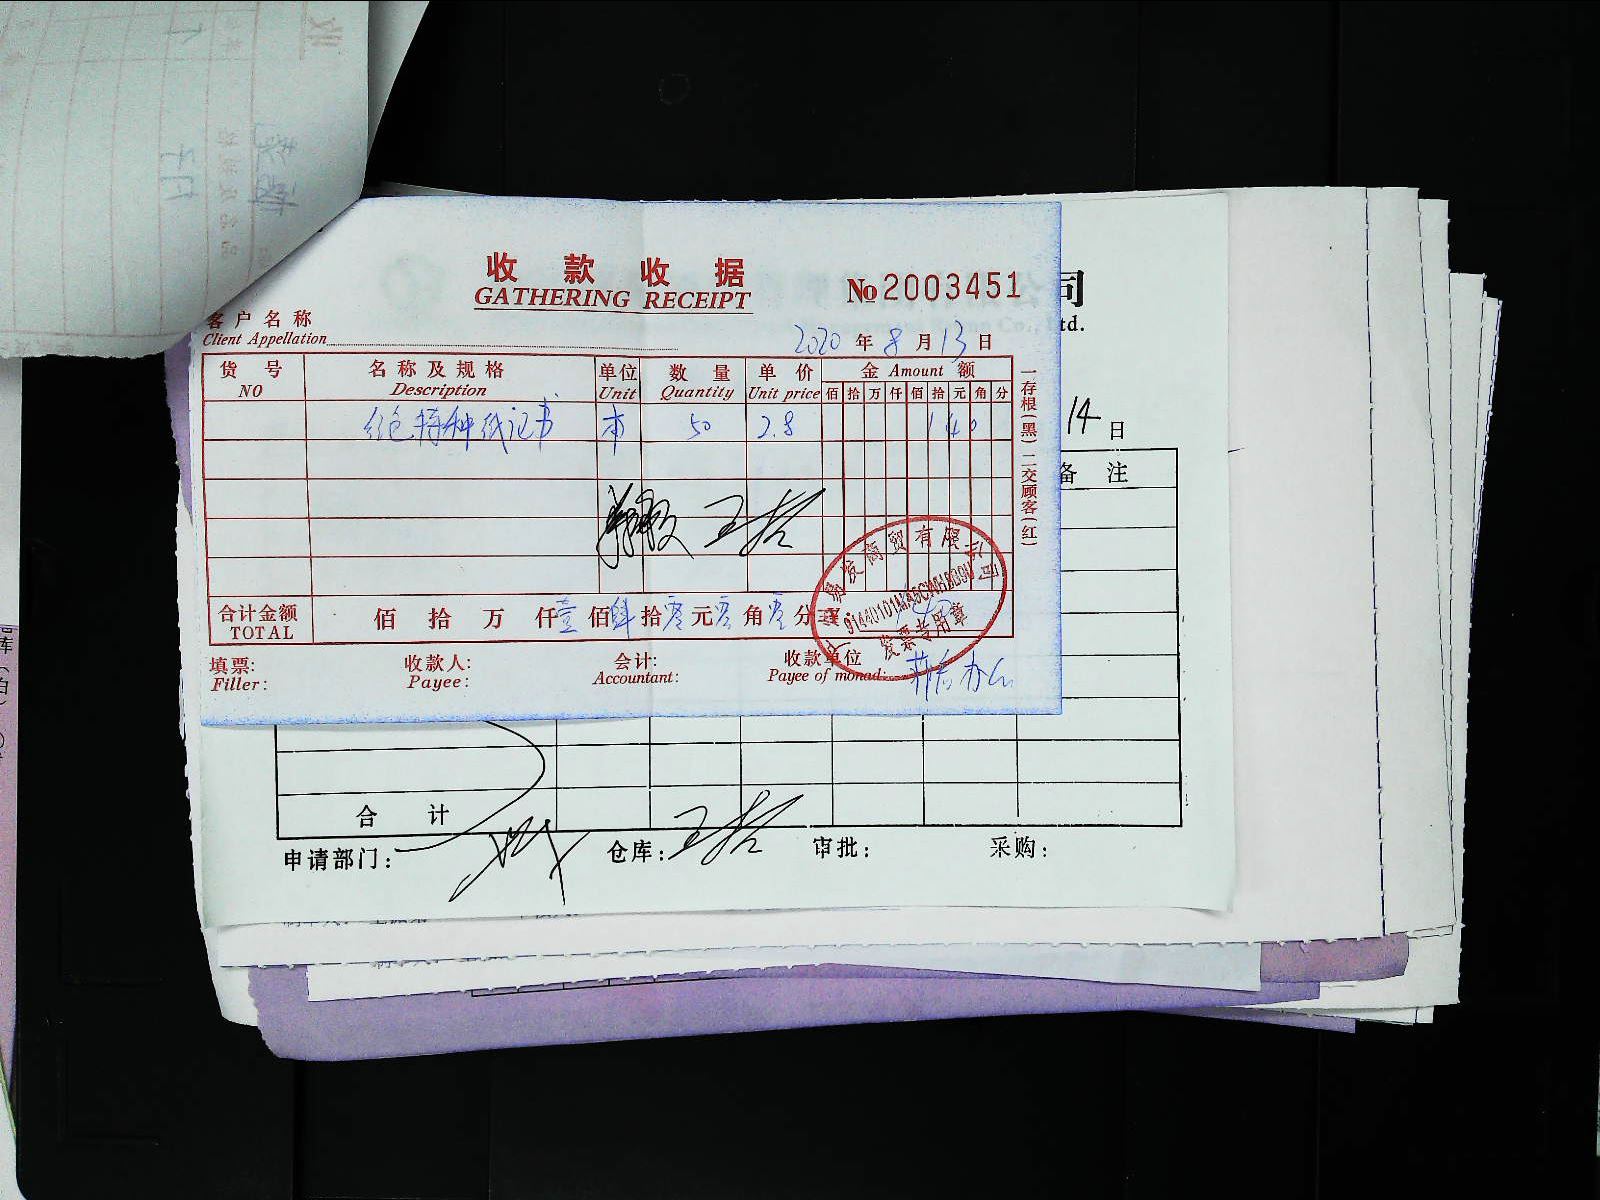 收款收据
GATHERING RECEIPT
№ 2003451
客户名称
Client Appellation
2020 年 8 月 13 日
货号 名称及规格 单位 数量 单价 金 Amount 额
NO Description Unit Quantity Unit price 佰 拾 万 仟 佰 拾 元 角 分
红色特种纸证书 本 50 2.8 1 4 0
王哲
合计金额 佰 拾 万 仟 壹 佰 肆 拾 零 元 零 角 零 分
TOTAL
填票: 收款人: 会计: 收款单位
Filler: Payee: Accountant: Payee of monad:
一存根(黑)二交顾客(红)
商贸有限公司
发票专用章
司
td.
14 日
备 注
合 计
申请部门: 仓库: 王哲 审批: 采购: